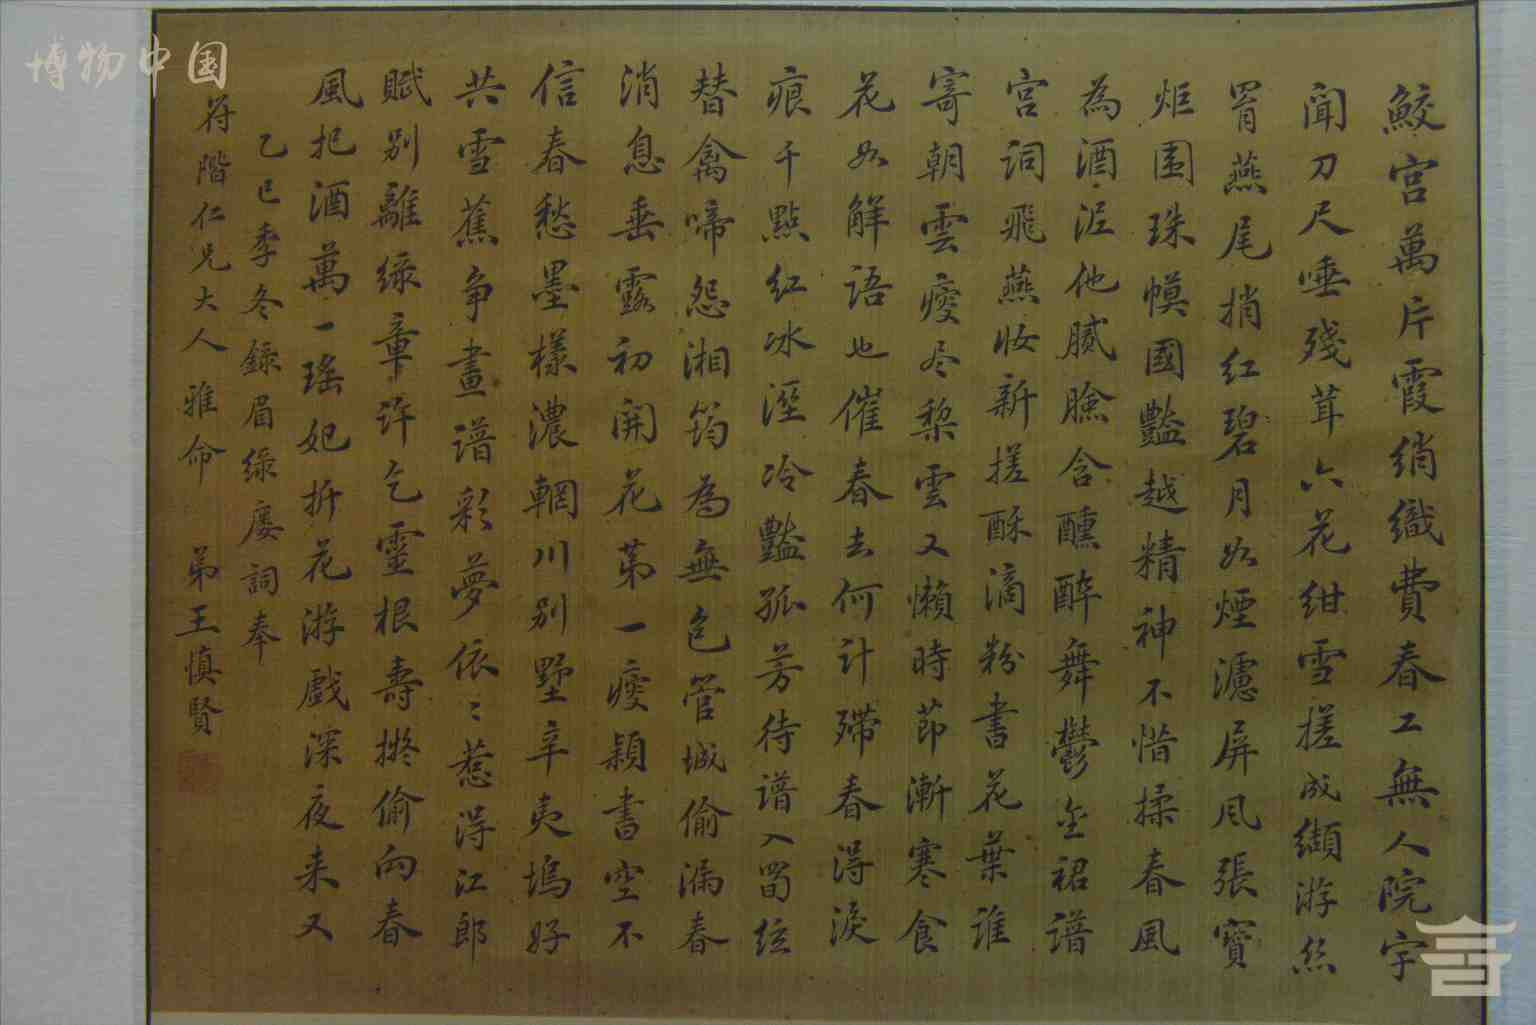 鮫宮萬片霞綃織費春工無人院宇
聞刀尺唾殘茸六花紺雪搓成纈游絲
罥燕尾捎紅碧月如煙濾屏風張寶
炬園珠幙國豔越精神不惜揉春風
為酒涴他膩臉含醺醉舞鬱金裙譜
宮詞飛燕妝新搓酥滴粉書花葉誰
寄朝雲瘦尽梨雲又懶時節漸寒食
花如解語也催春去何計殢春得淚
痕千點紅冰溼冷豔孤芳待譜入蜀絃
替禽啼怨湘筠為無色管城偷漏春
消息垂露初開花第一瘦穎書空不
信春愁墨樣濃輞川別墅辛夷塢好
共雪蕉争畫譜彩夢依〻惹得江郎
賦別離綠章許乞靈根壽擬偷向春
風把酒萬一瑤妃折花游戲深夜来又
乙巳季冬錄眉綠廔詞奉
符階仁兄大人雅命 弟王慎賢
博物中国